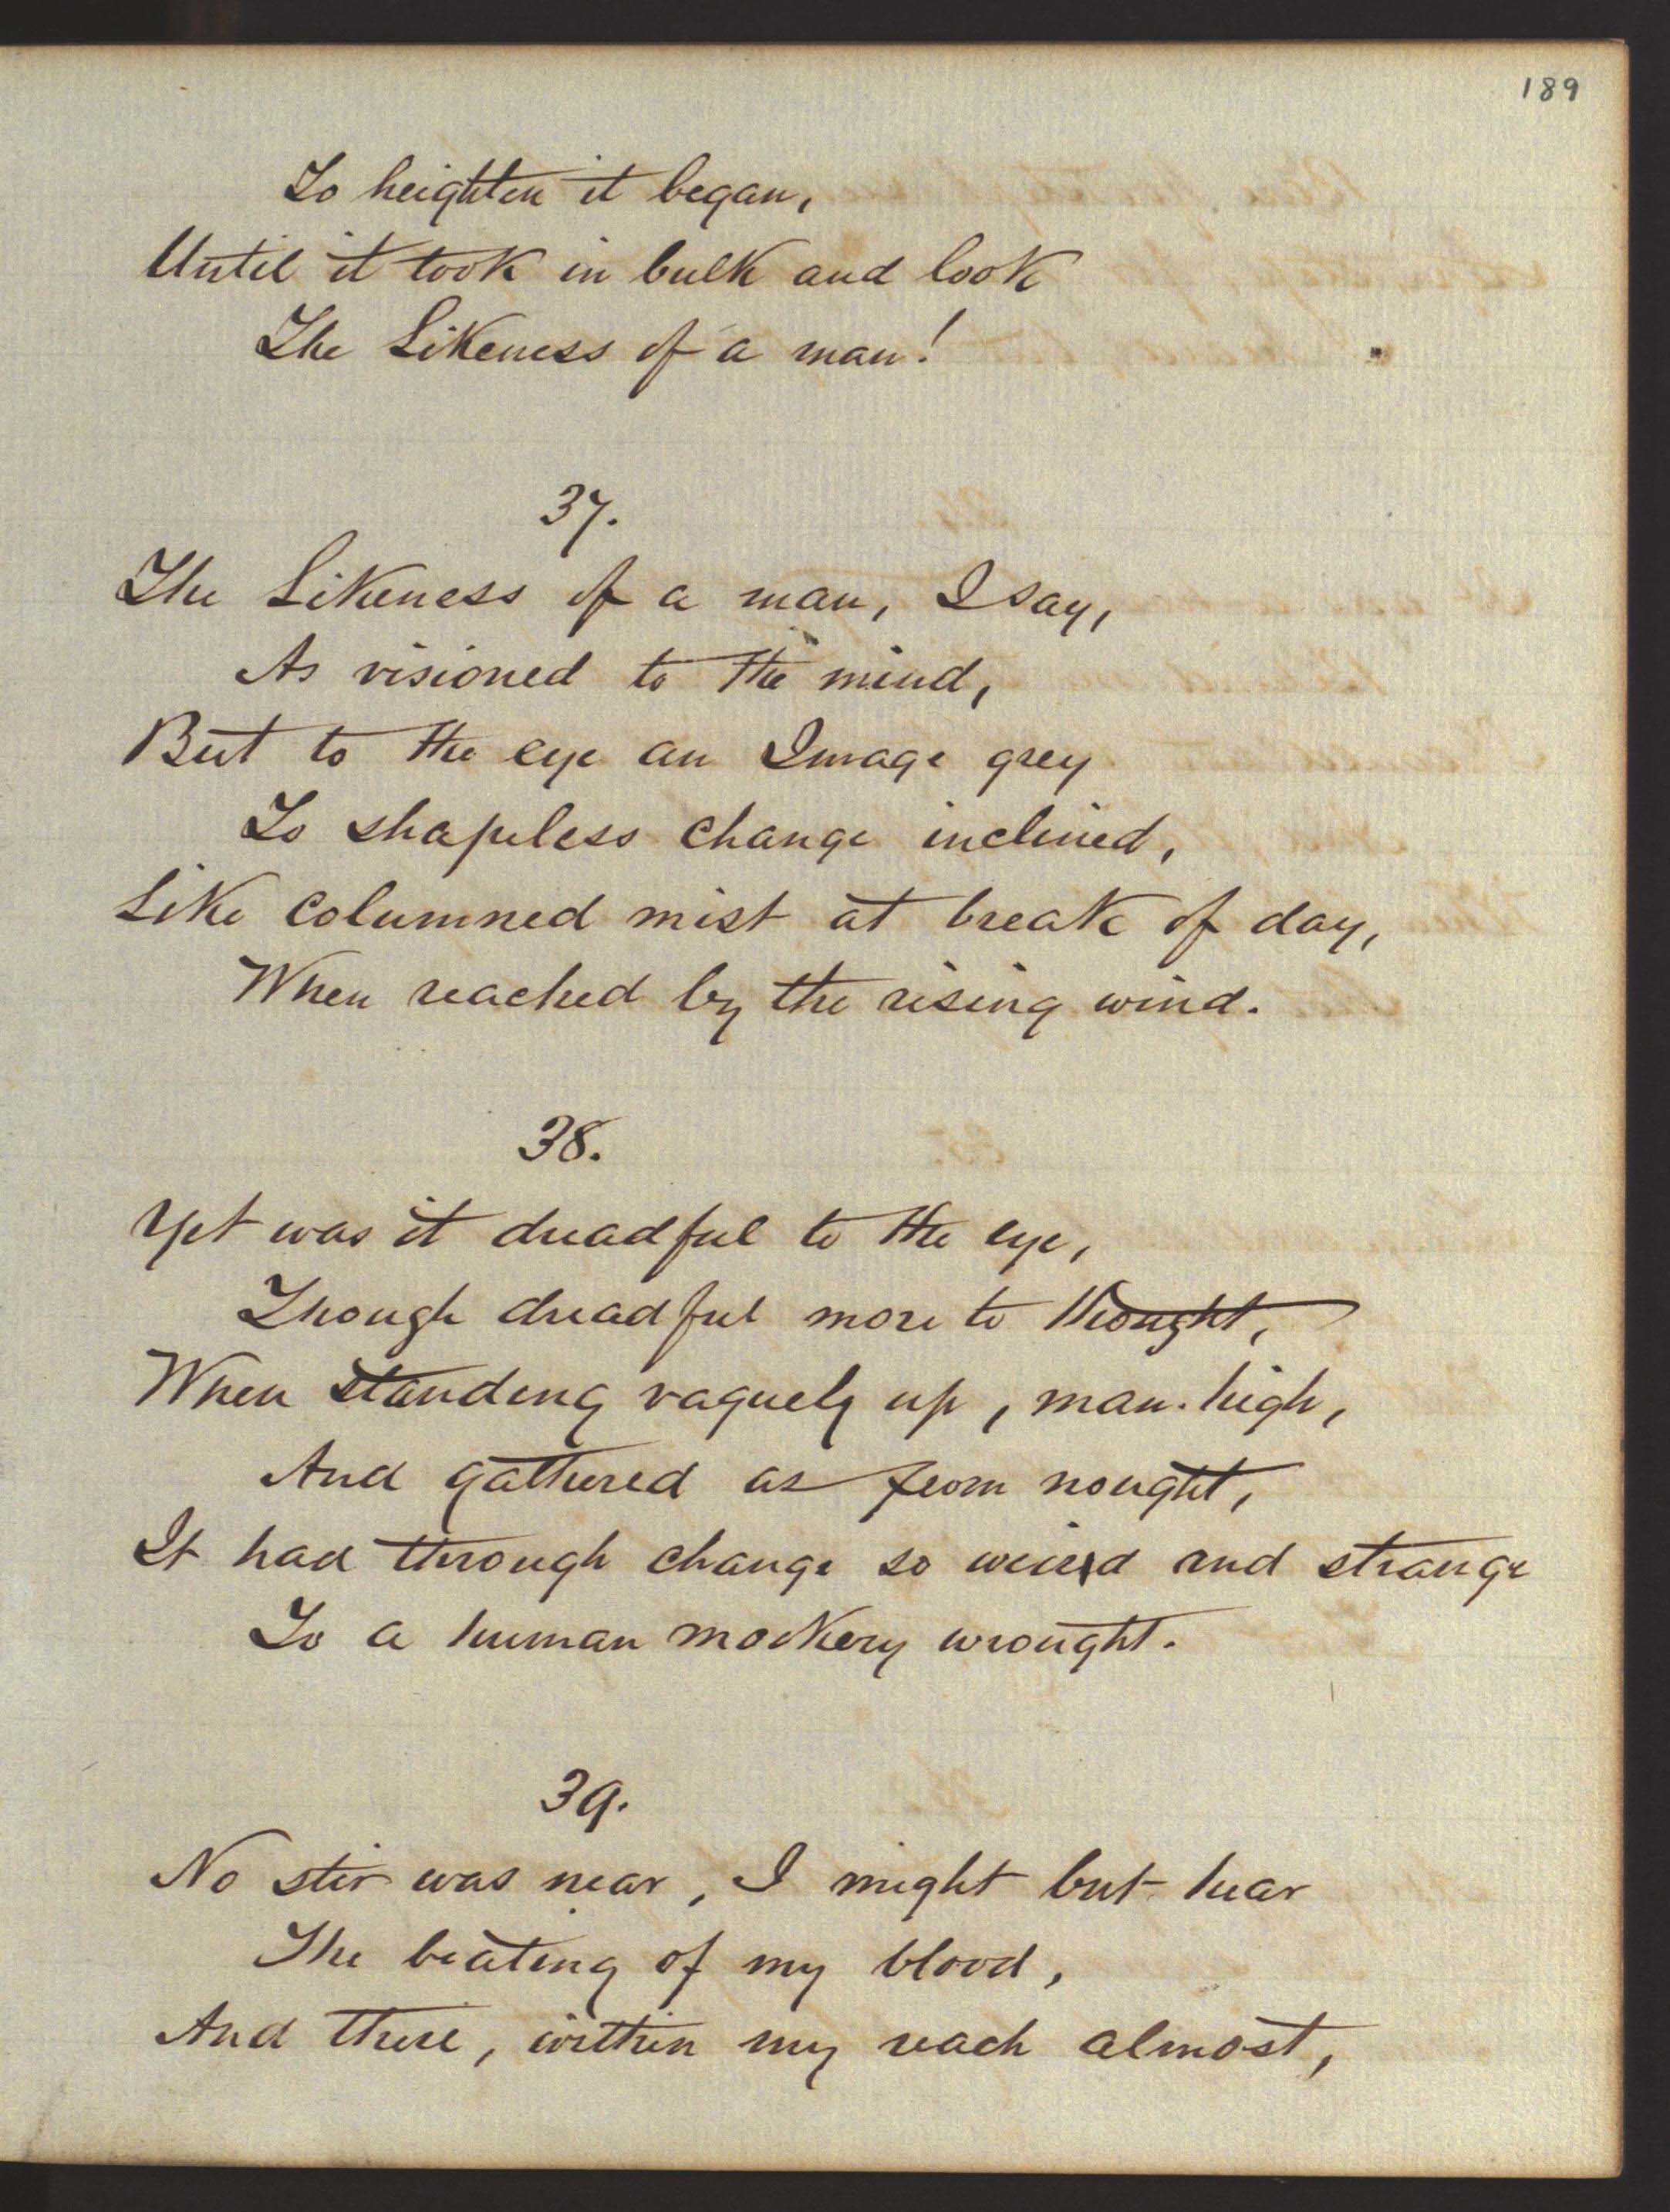 189
To heighten it began,
Until it took in bulk and look
The Likeness of a man!
37.
The Likeness of a man, I say,
As visioned to the mind,
But to the eye an Image grey
To shapeless change inclined,
Like columned mist at break of day,
When reached by the rising wind.
38.
Yet was it dreadful to the eye,
Though dreadful more to thought,
When standing vaguely up, man-high,
And gathered as from nought,
It had through change so weird and strange
To a human mockery wrought.
39.
No stir was near, I might but hear
The beating of my blood,
And there, within my reach almost,